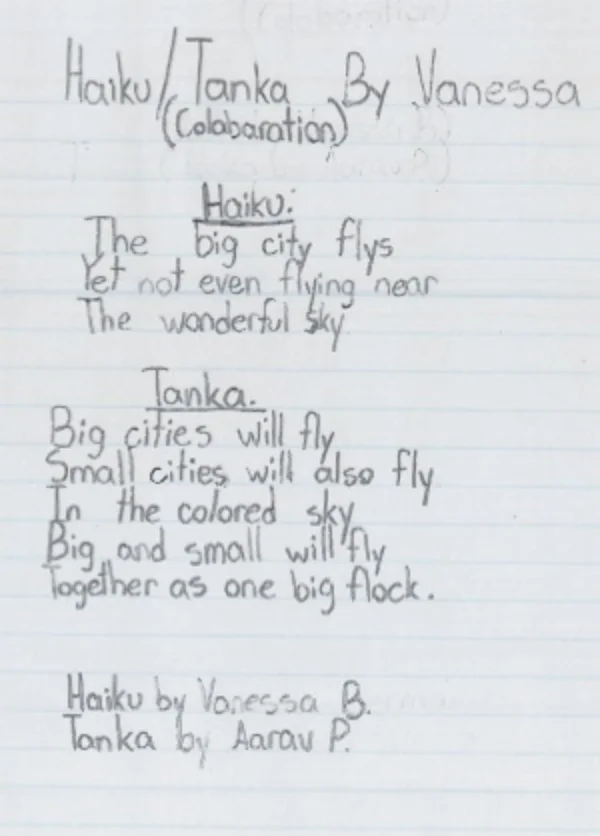 Haiku/Tanka By Vanessa
(Colabaration)
Haiku:
The big city flys
Yet not even flying near
The wonderful sky
Tanka.
Big cities will fly
Small cities will also fly
In the colored sky
Big and small will fly
Together as one big flock.
Haiku by Vanessa B.
Tanka by Aarav P.